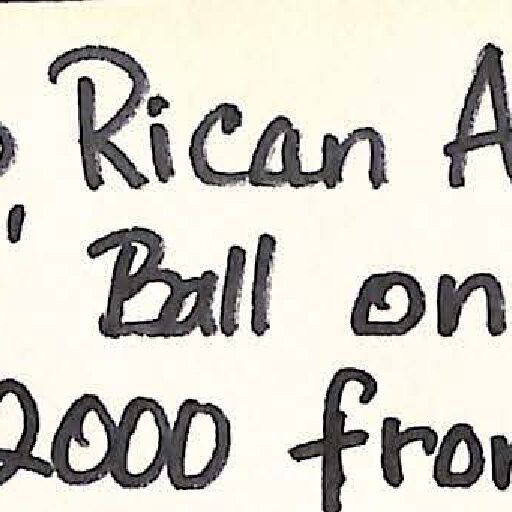 Rican A
' Ball on
2000 from